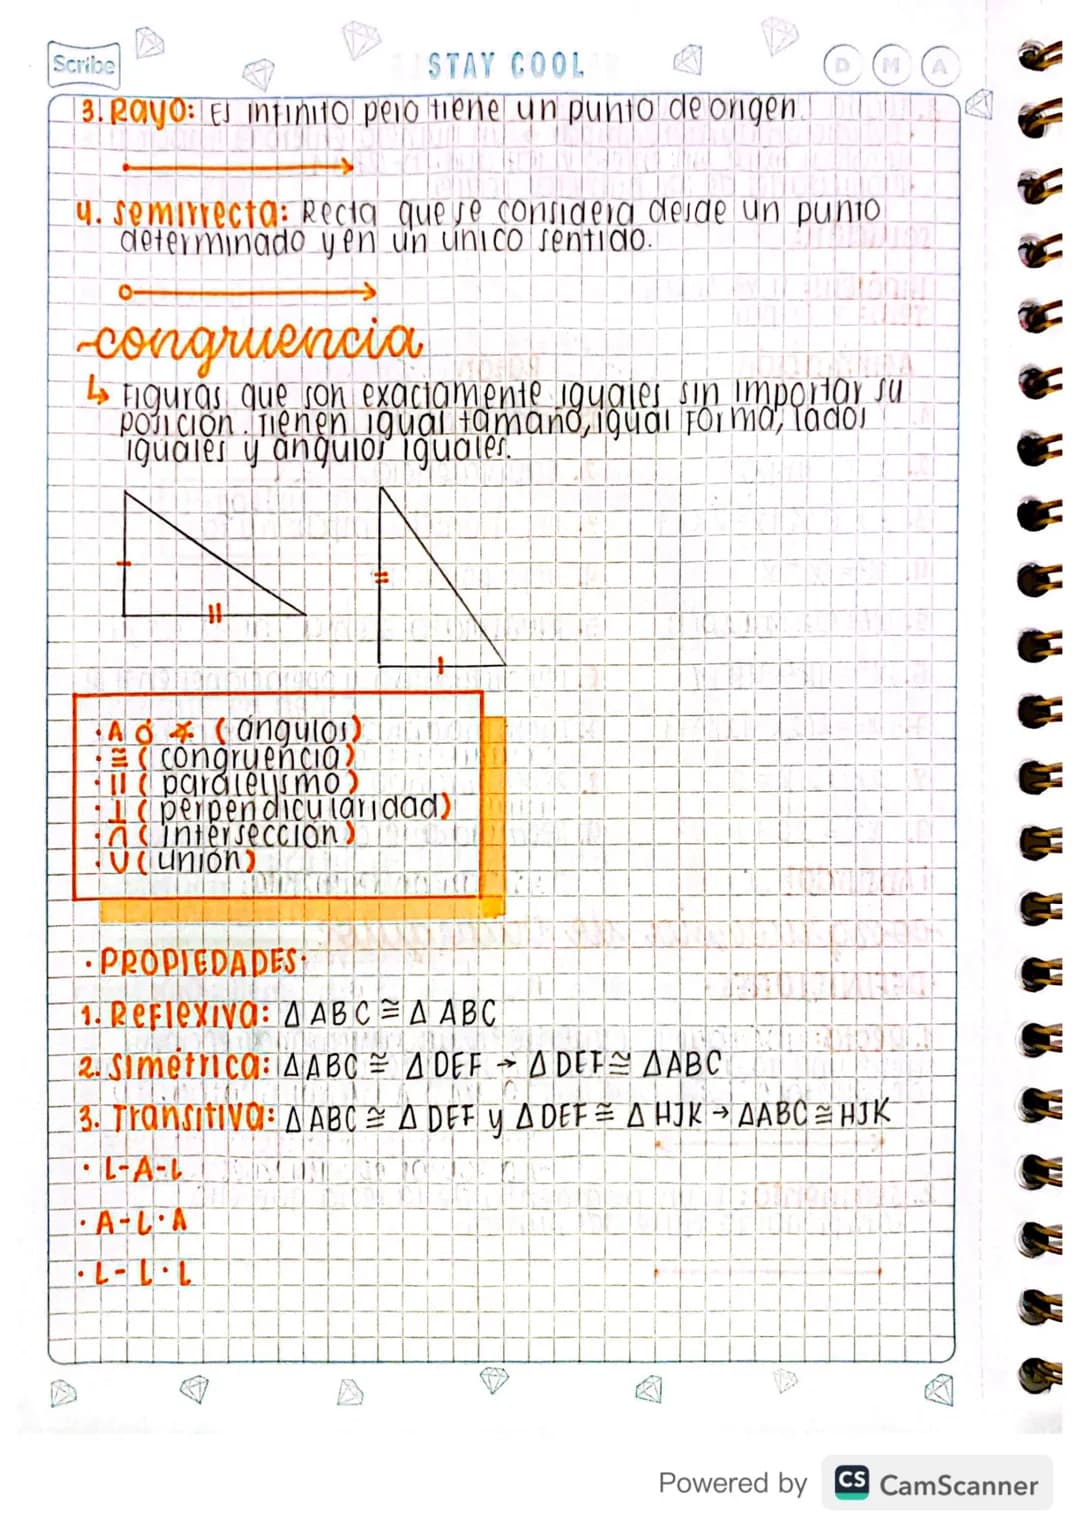 Scribe
STAY COOL
D M A
3. Rayo: Es infinito pero tiene un punto de origen.
4. semirrecta: Recta que se considera desde un punto
determinado y en un único sentido.
congruencia
↳ Figuras que son exactamente iguales sin importar su
posición. Tienen igual tamaño, igual Forma, lados
iguales y ángulos iguales.
· A ó ∢ (ángulos)
· ≅ (congruencia)
· || (paralelismo)
· ⊥ (perpendicularidad)
· ∩ (intersección)
· U (unión)
· PROPIEDADES·
1. Reflexiva: Δ ABC ≅ Δ ABC
2. simétrica: ΔABC ≅ Δ DEF → Δ DEF ≅ ΔABC
3. Transitiva: Δ ABC ≅ Δ DEF y Δ DEF ≅ Δ HJK → ΔABC ≅ HJK
· L-A-L
· A-L·A
· L-L·L
Powered by CS CamScanner